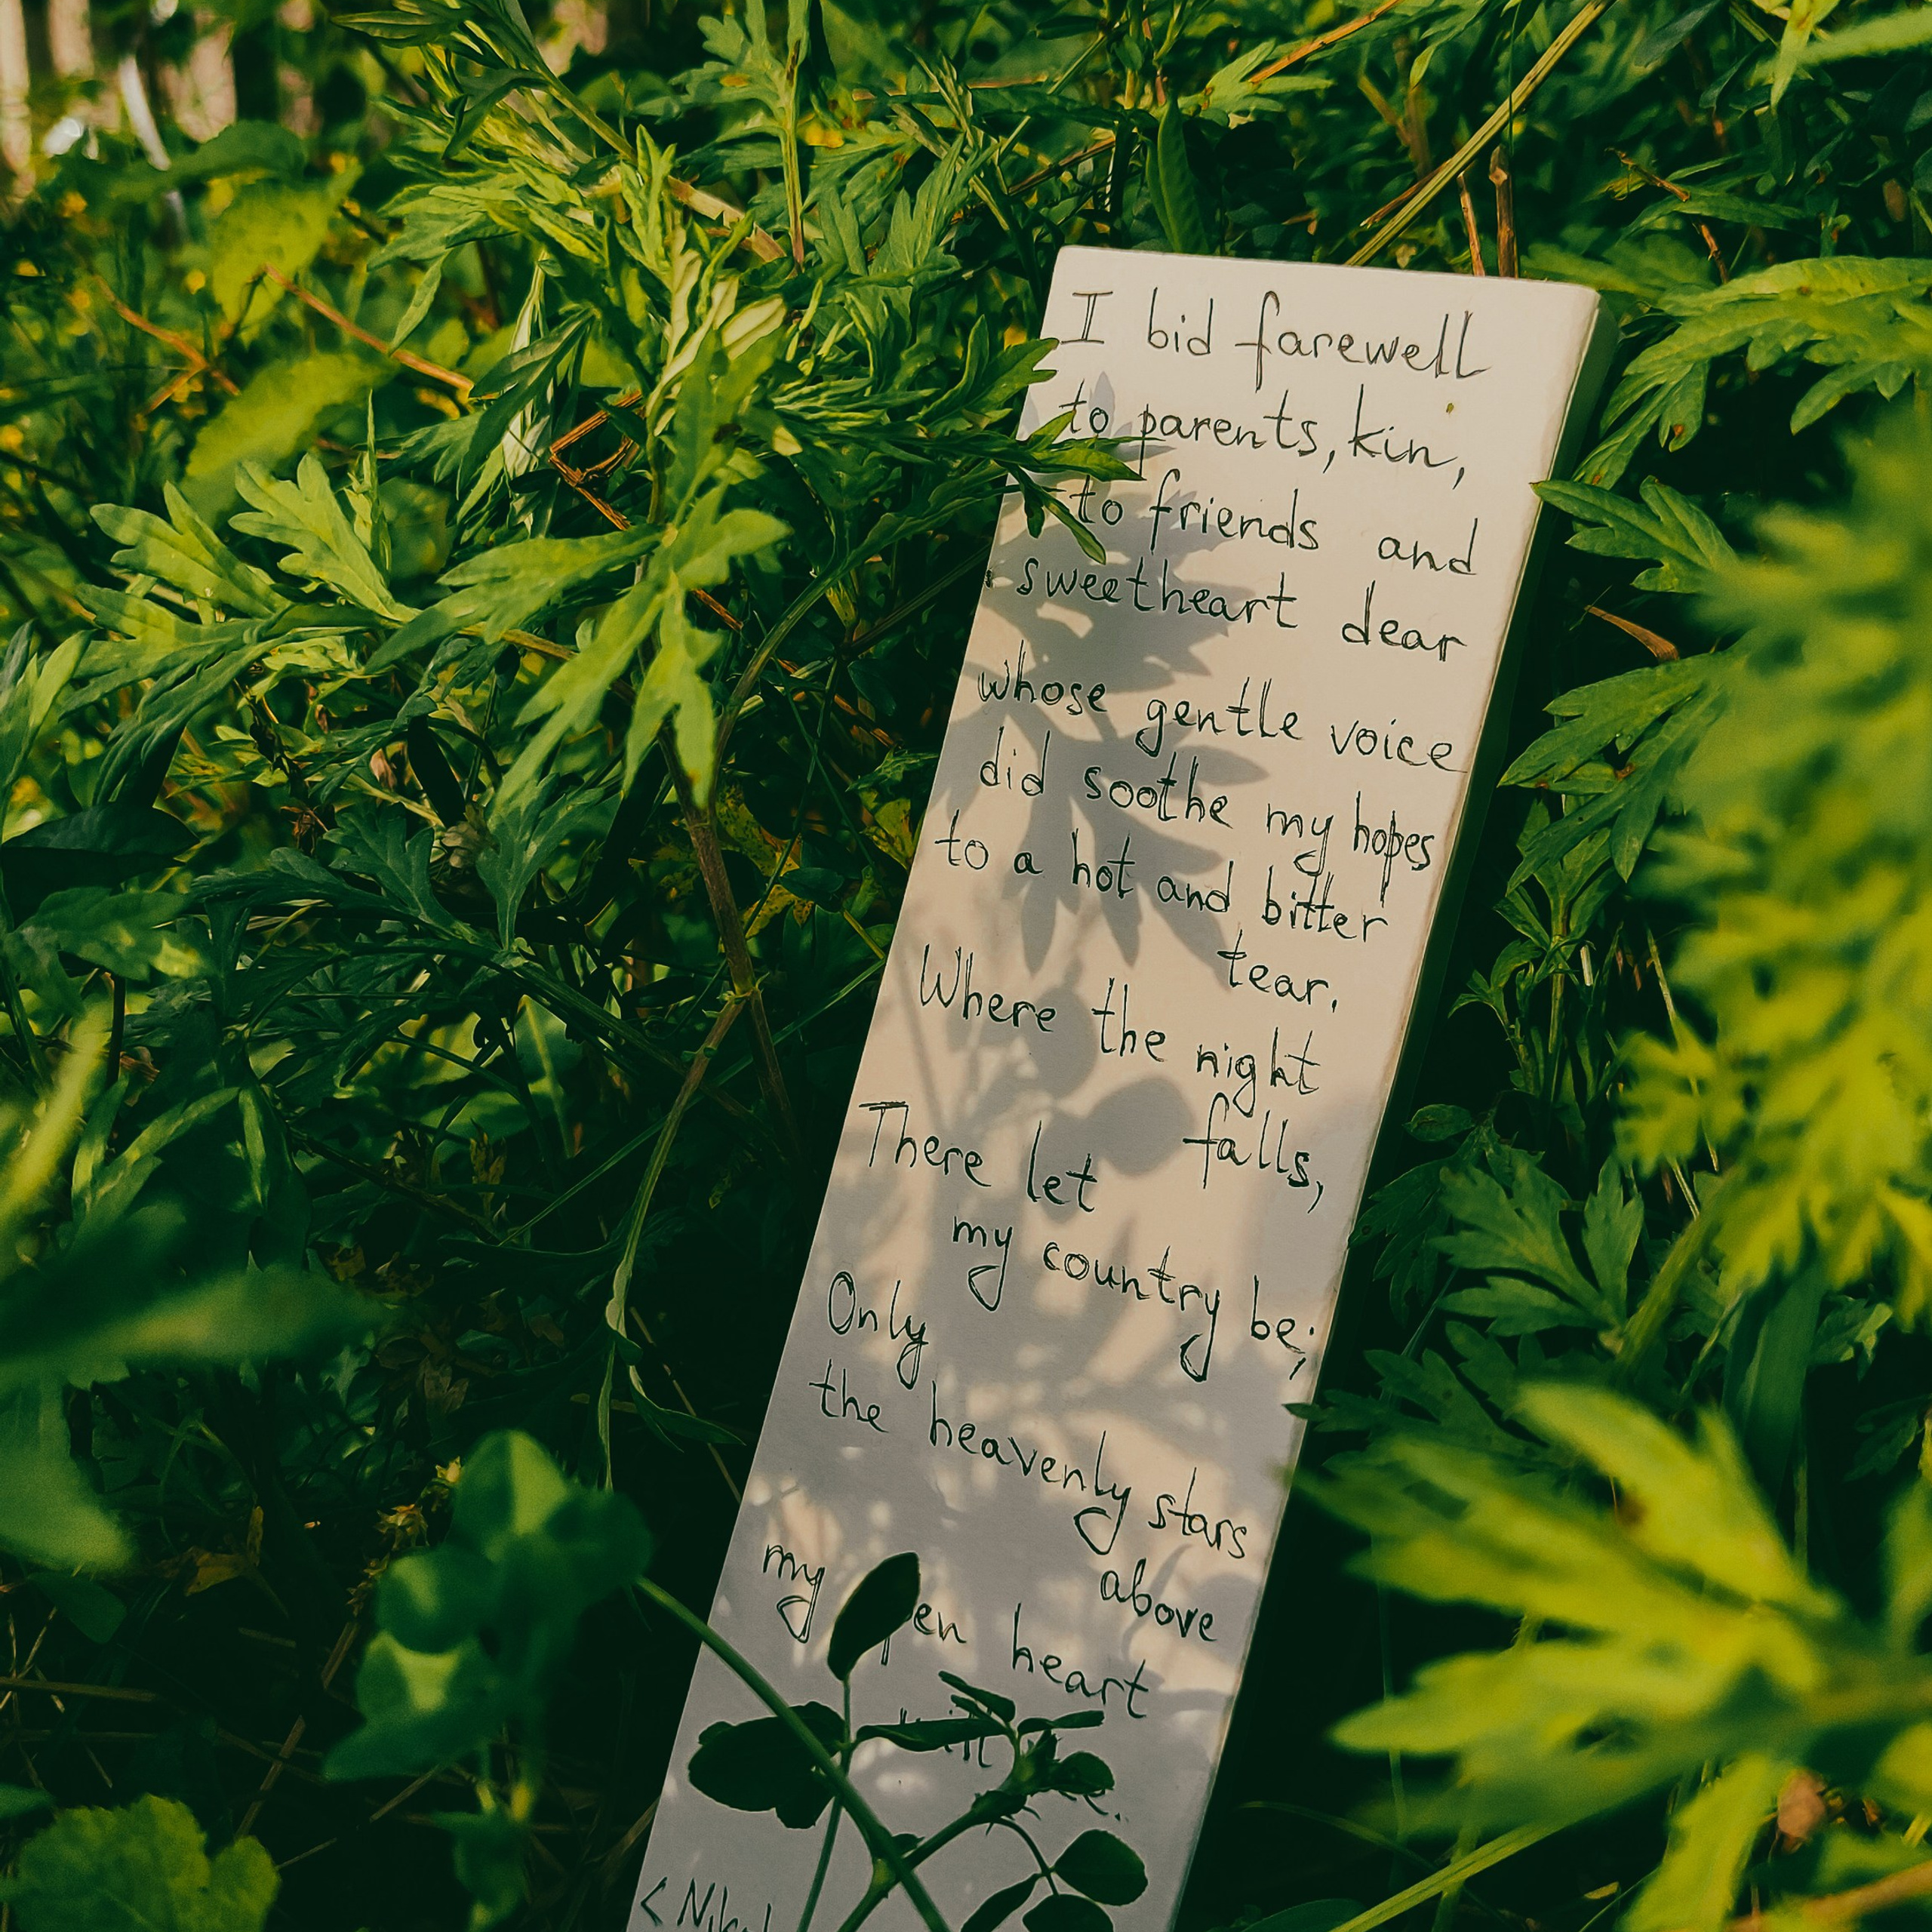 I bid farewell
to parents, kin,
to friends and
sweetheart dear
whose gentle voice
did soothe my hopes
to a hot and bitter
tear.
Where the night
falls,
There let
my country be;
Only
the heavenly stars
above
my heart